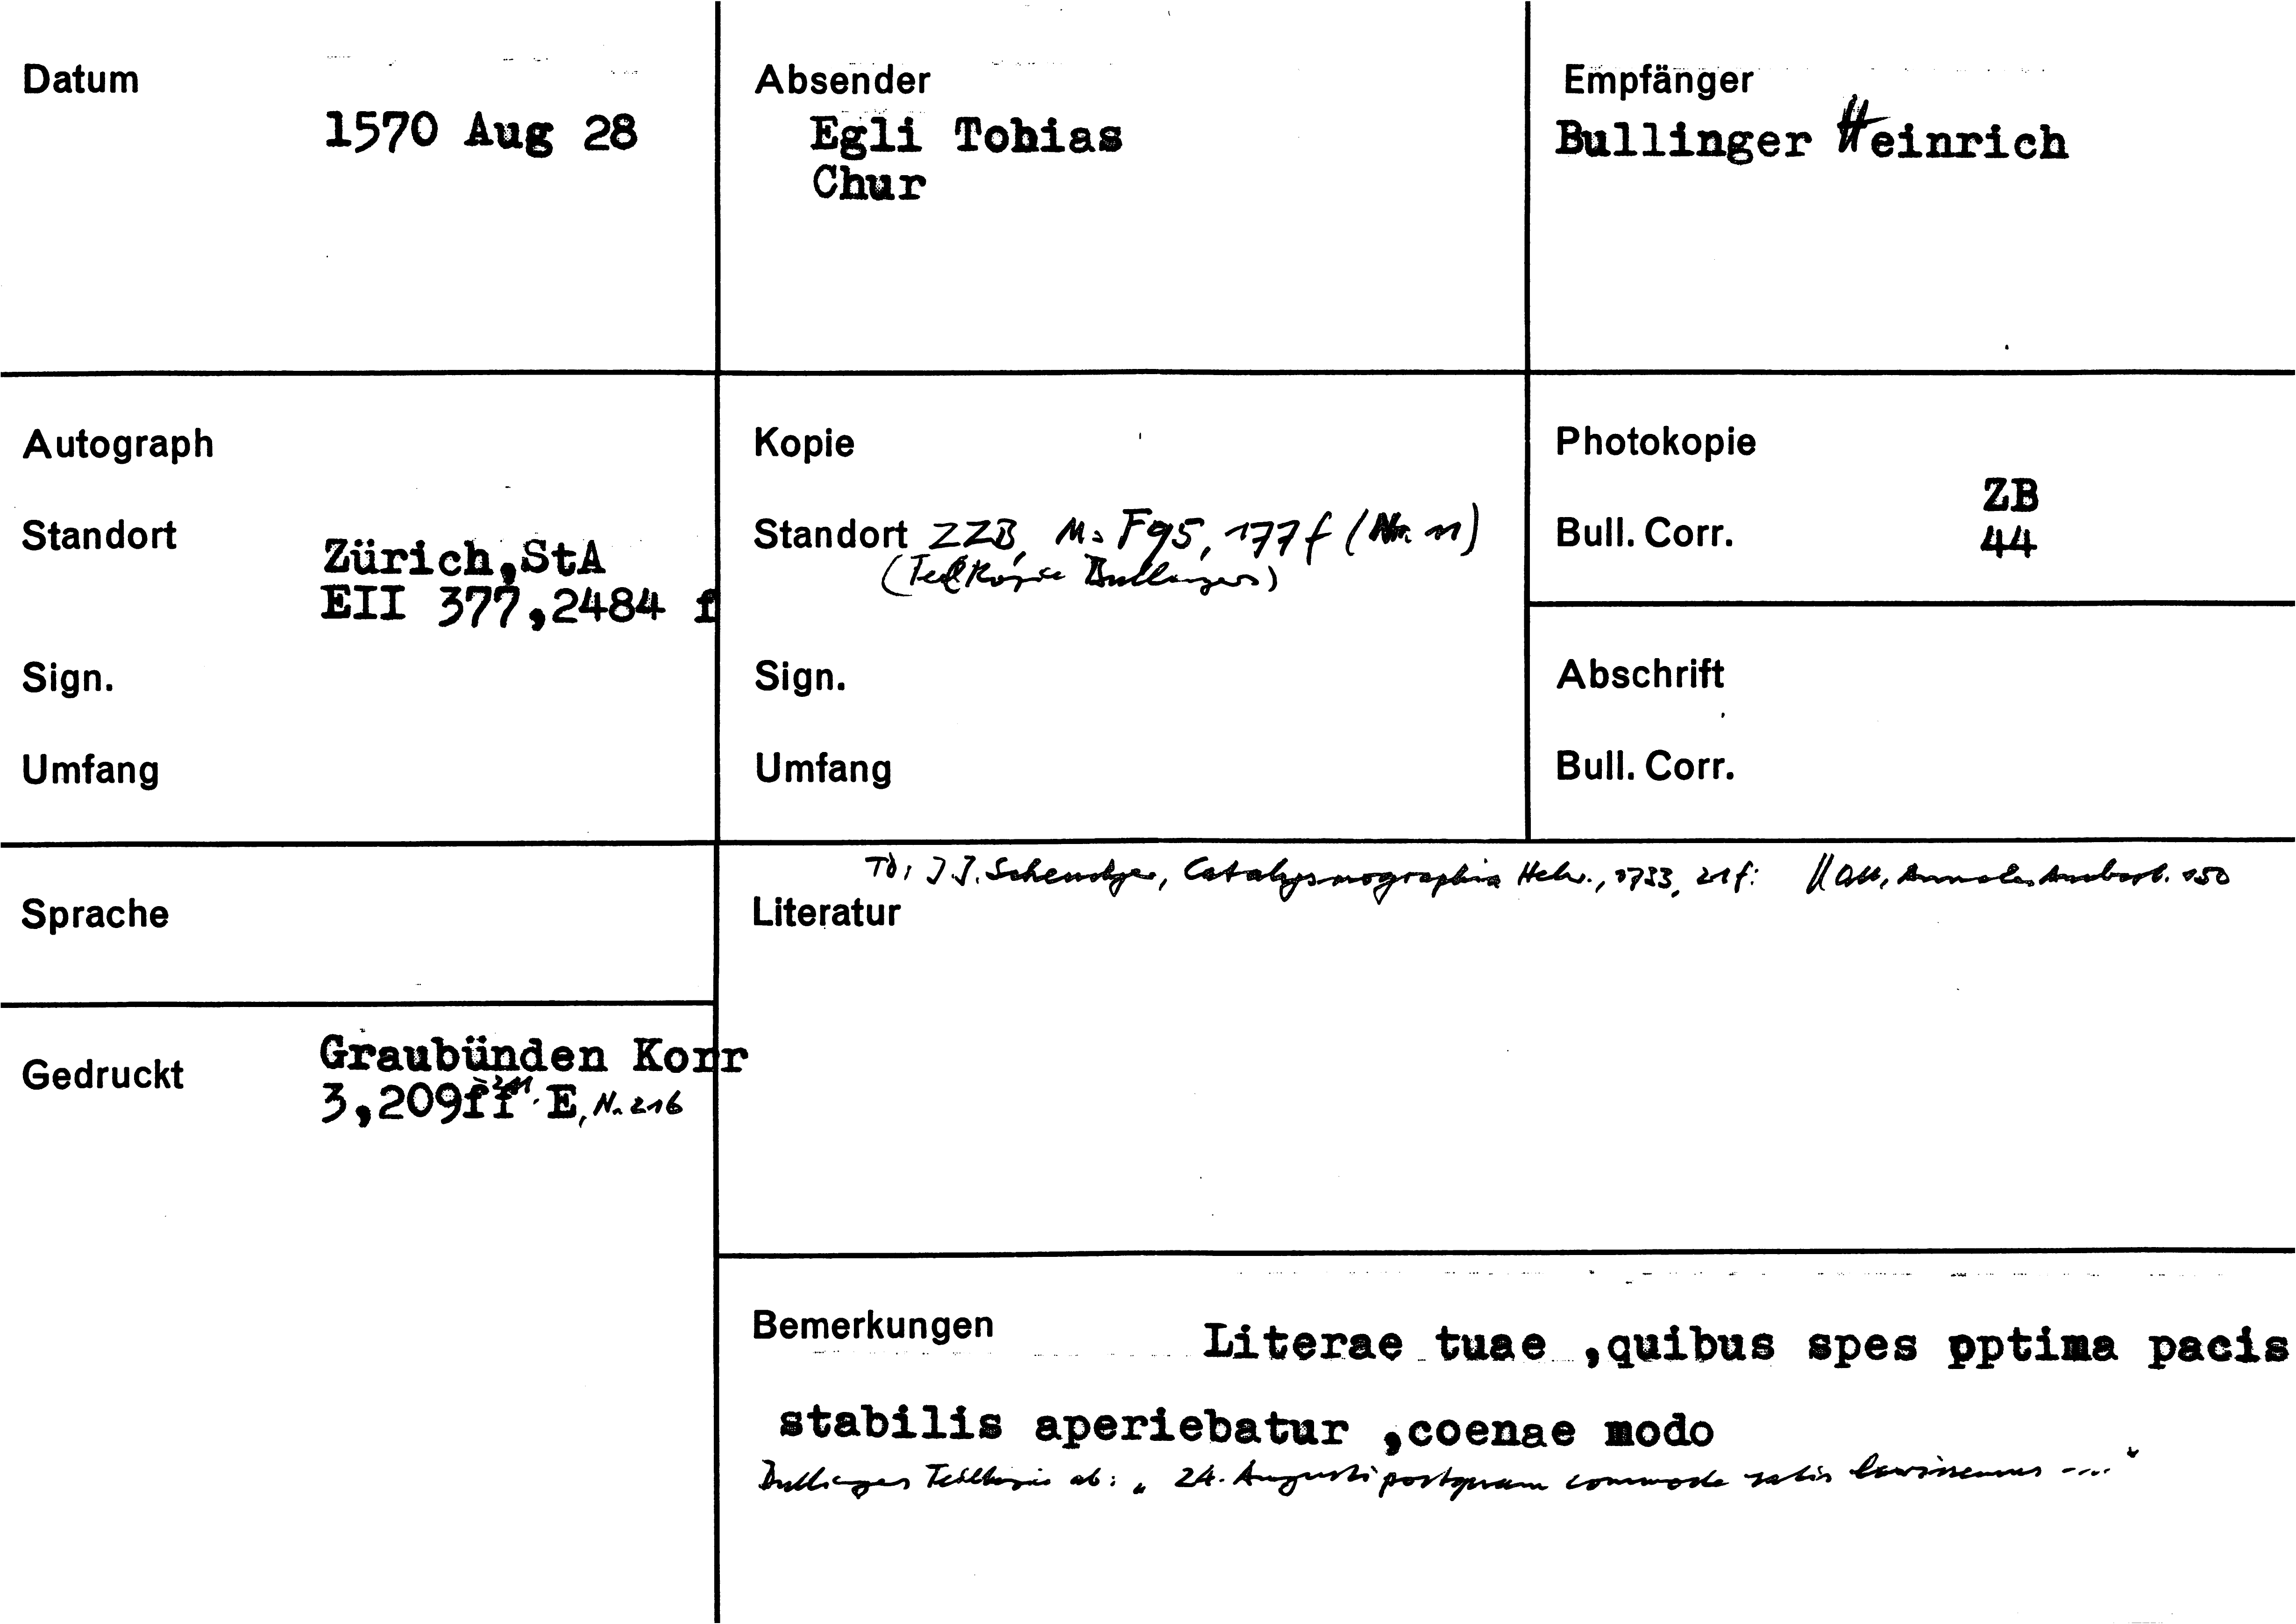 Datum
1570 Aug 28
Absender
Egli Tobias
Chur
Empfänger
Bullinger Heinrich
Autograph
Standort
Zürich,StA
EII 377,2484 f
Sign.
Umfang
Kopie
Standort ZZB, Ms F95, 177f (Nr. 11)
(Teilkopie Bullingers)
Sign.
Umfang
Photokopie
ZB
Bull. Corr. 44
Abschrift
Bull. Corr.
Sprache
TD: J.J. Scheuchzer, Helv., 1733, 21f.
Literatur
Gedruckt
Graubünden Korr
3,209ff E, Nr 216
Bemerkungen
Literae tuae ,quibus spes pptima pacis
stabilis aperiebatur ,coenae modo
Bullingers Teilkopie ab: „ 24. Augusti postquam commode satis ...."